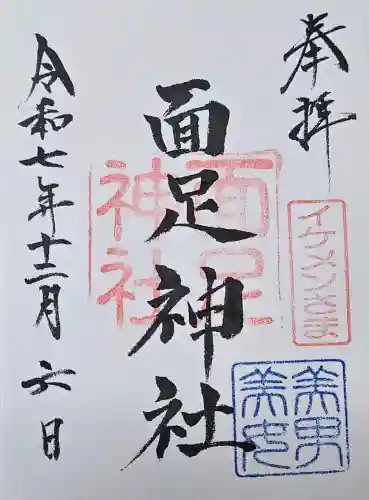 奉拝
面足神社
面足
神社
イケメン
美男
美女
令和七年十二月六日